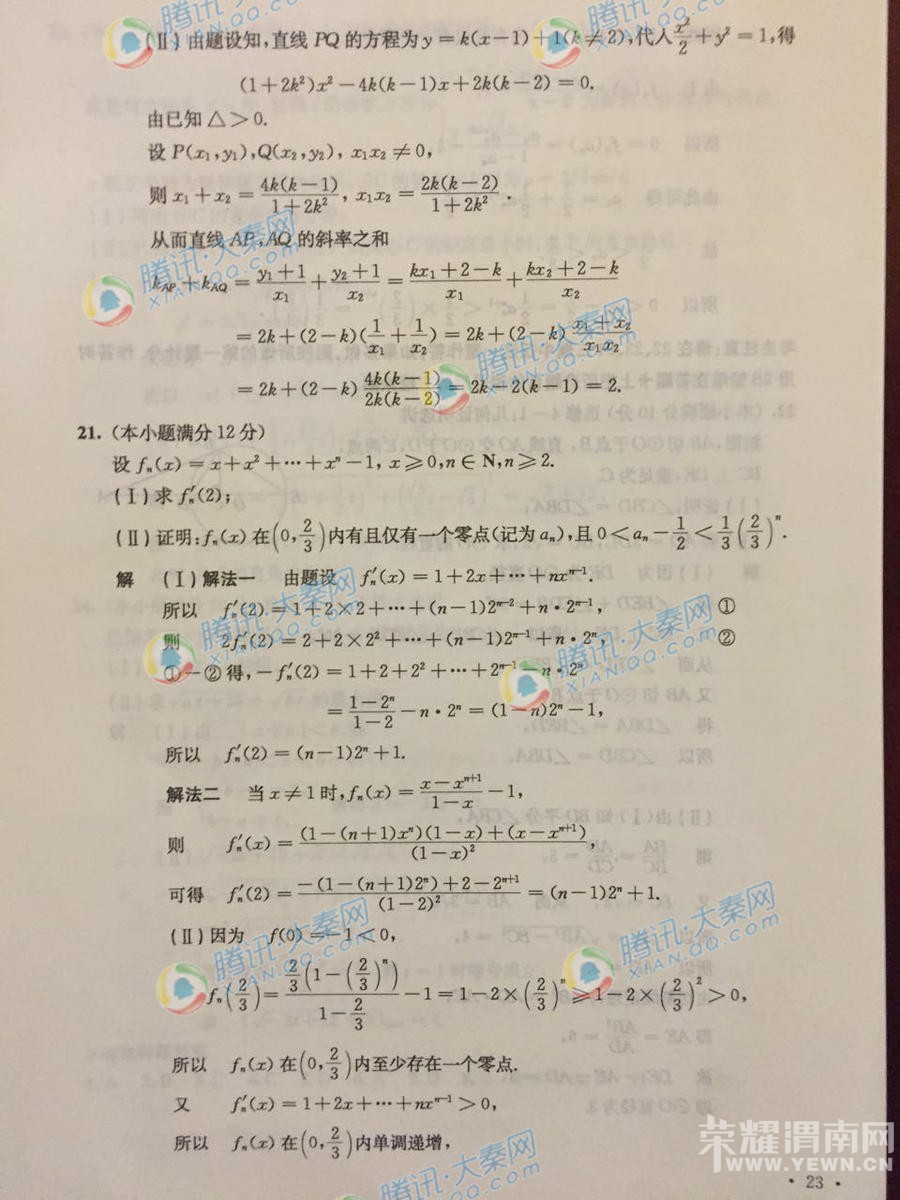 (Ⅱ)由题设知,直线 PQ 的方程为 y = k(x−1)+1(k ≠ 2),代入 x²/2 + y² = 1,得
(1+2k²)x² − 4k(k−1)x + 2k(k−2) = 0.
由已知 △ > 0.
设 P(x₁,y₁),Q(x₂,y₂), x₁x₂ ≠ 0,
则 x₁ + x₂ = 4k(k−1)/(1+2k²), x₁x₂ = 2k(k−2)/(1+2k²).
从而直线 AP,AQ 的斜率之和
k_AP + k_AQ = (y₁+1)/x₁ + (y₂+1)/x₂ = (kx₁+2−k)/x₁ + (kx₂+2−k)/x₂
= 2k+(2−k)(1/x₁ + 1/x₂) = 2k+(2−k) (x₁+x₂)/(x₁x₂)
= 2k+(2−k) 4k(k−1)/(2k(k−2)) = 2k−2(k−1) = 2.
21. (本小题满分 12 分)
设 fₙ(x) = x+x²+⋯+xⁿ−1, x ≥ 0,n ∈ N,n ≥ 2.
(Ⅰ)求 fₙ′(2);
(Ⅱ)证明:fₙ(x) 在(0, 2/3)内有且仅有一个零点(记为 aₙ),且 0 < aₙ − 1/2 < 1/3 (2/3)ⁿ.
解 (Ⅰ)解法一 由题设 fₙ′(x) = 1+2x+⋯+nxⁿ⁻¹.
所以 fₙ′(2) = 1+2×2+⋯+(n−1)2ⁿ⁻²+n·2ⁿ⁻¹, ①
则 2fₙ′(2) = 2+2×2²+⋯+(n−1)2ⁿ⁻¹+n·2ⁿ, ②
①−② 得,−fₙ′(2) = 1+2+2²+⋯+2ⁿ⁻¹−n·2ⁿ
= (1−2ⁿ)/(1−2) − n·2ⁿ = (1−n)2ⁿ−1,
所以 fₙ′(2) = (n−1)2ⁿ+1.
解法二 当 x ≠ 1 时,fₙ(x) = (x−xⁿ⁺¹)/(1−x) −1,
则 fₙ′(x) = ((1−(n+1)xⁿ)(1−x)+(x−xⁿ⁺¹))/(1−x)²,
可得 fₙ′(2) = (−(1−(n+1)2ⁿ)+2−2ⁿ⁺¹)/(1−2)² = (n−1)2ⁿ+1.
(Ⅱ)因为 f(0) = −1 < 0,
fₙ(2/3) = (2/3(1−(2/3)ⁿ))/(1−2/3) −1 = 1−2×(2/3)ⁿ ≥ 1−2×(2/3)² > 0,
所以 fₙ(x) 在(0, 2/3)内至少存在一个零点.
又 fₙ′(x) = 1+2x+⋯+nxⁿ⁻¹ > 0,
所以 fₙ(x) 在(0, 2/3)内单调递增,
· 23 ·
腾讯·大秦网
XIAN.QQ.COM
荣耀渭南网
WWW.YEWN.CN